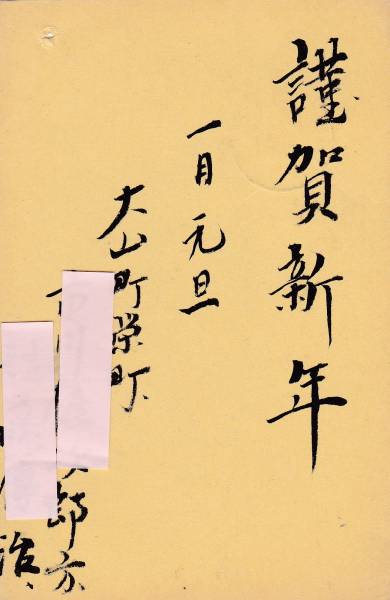 謹賀新年
一月元旦
大山町栄町
郎方
治